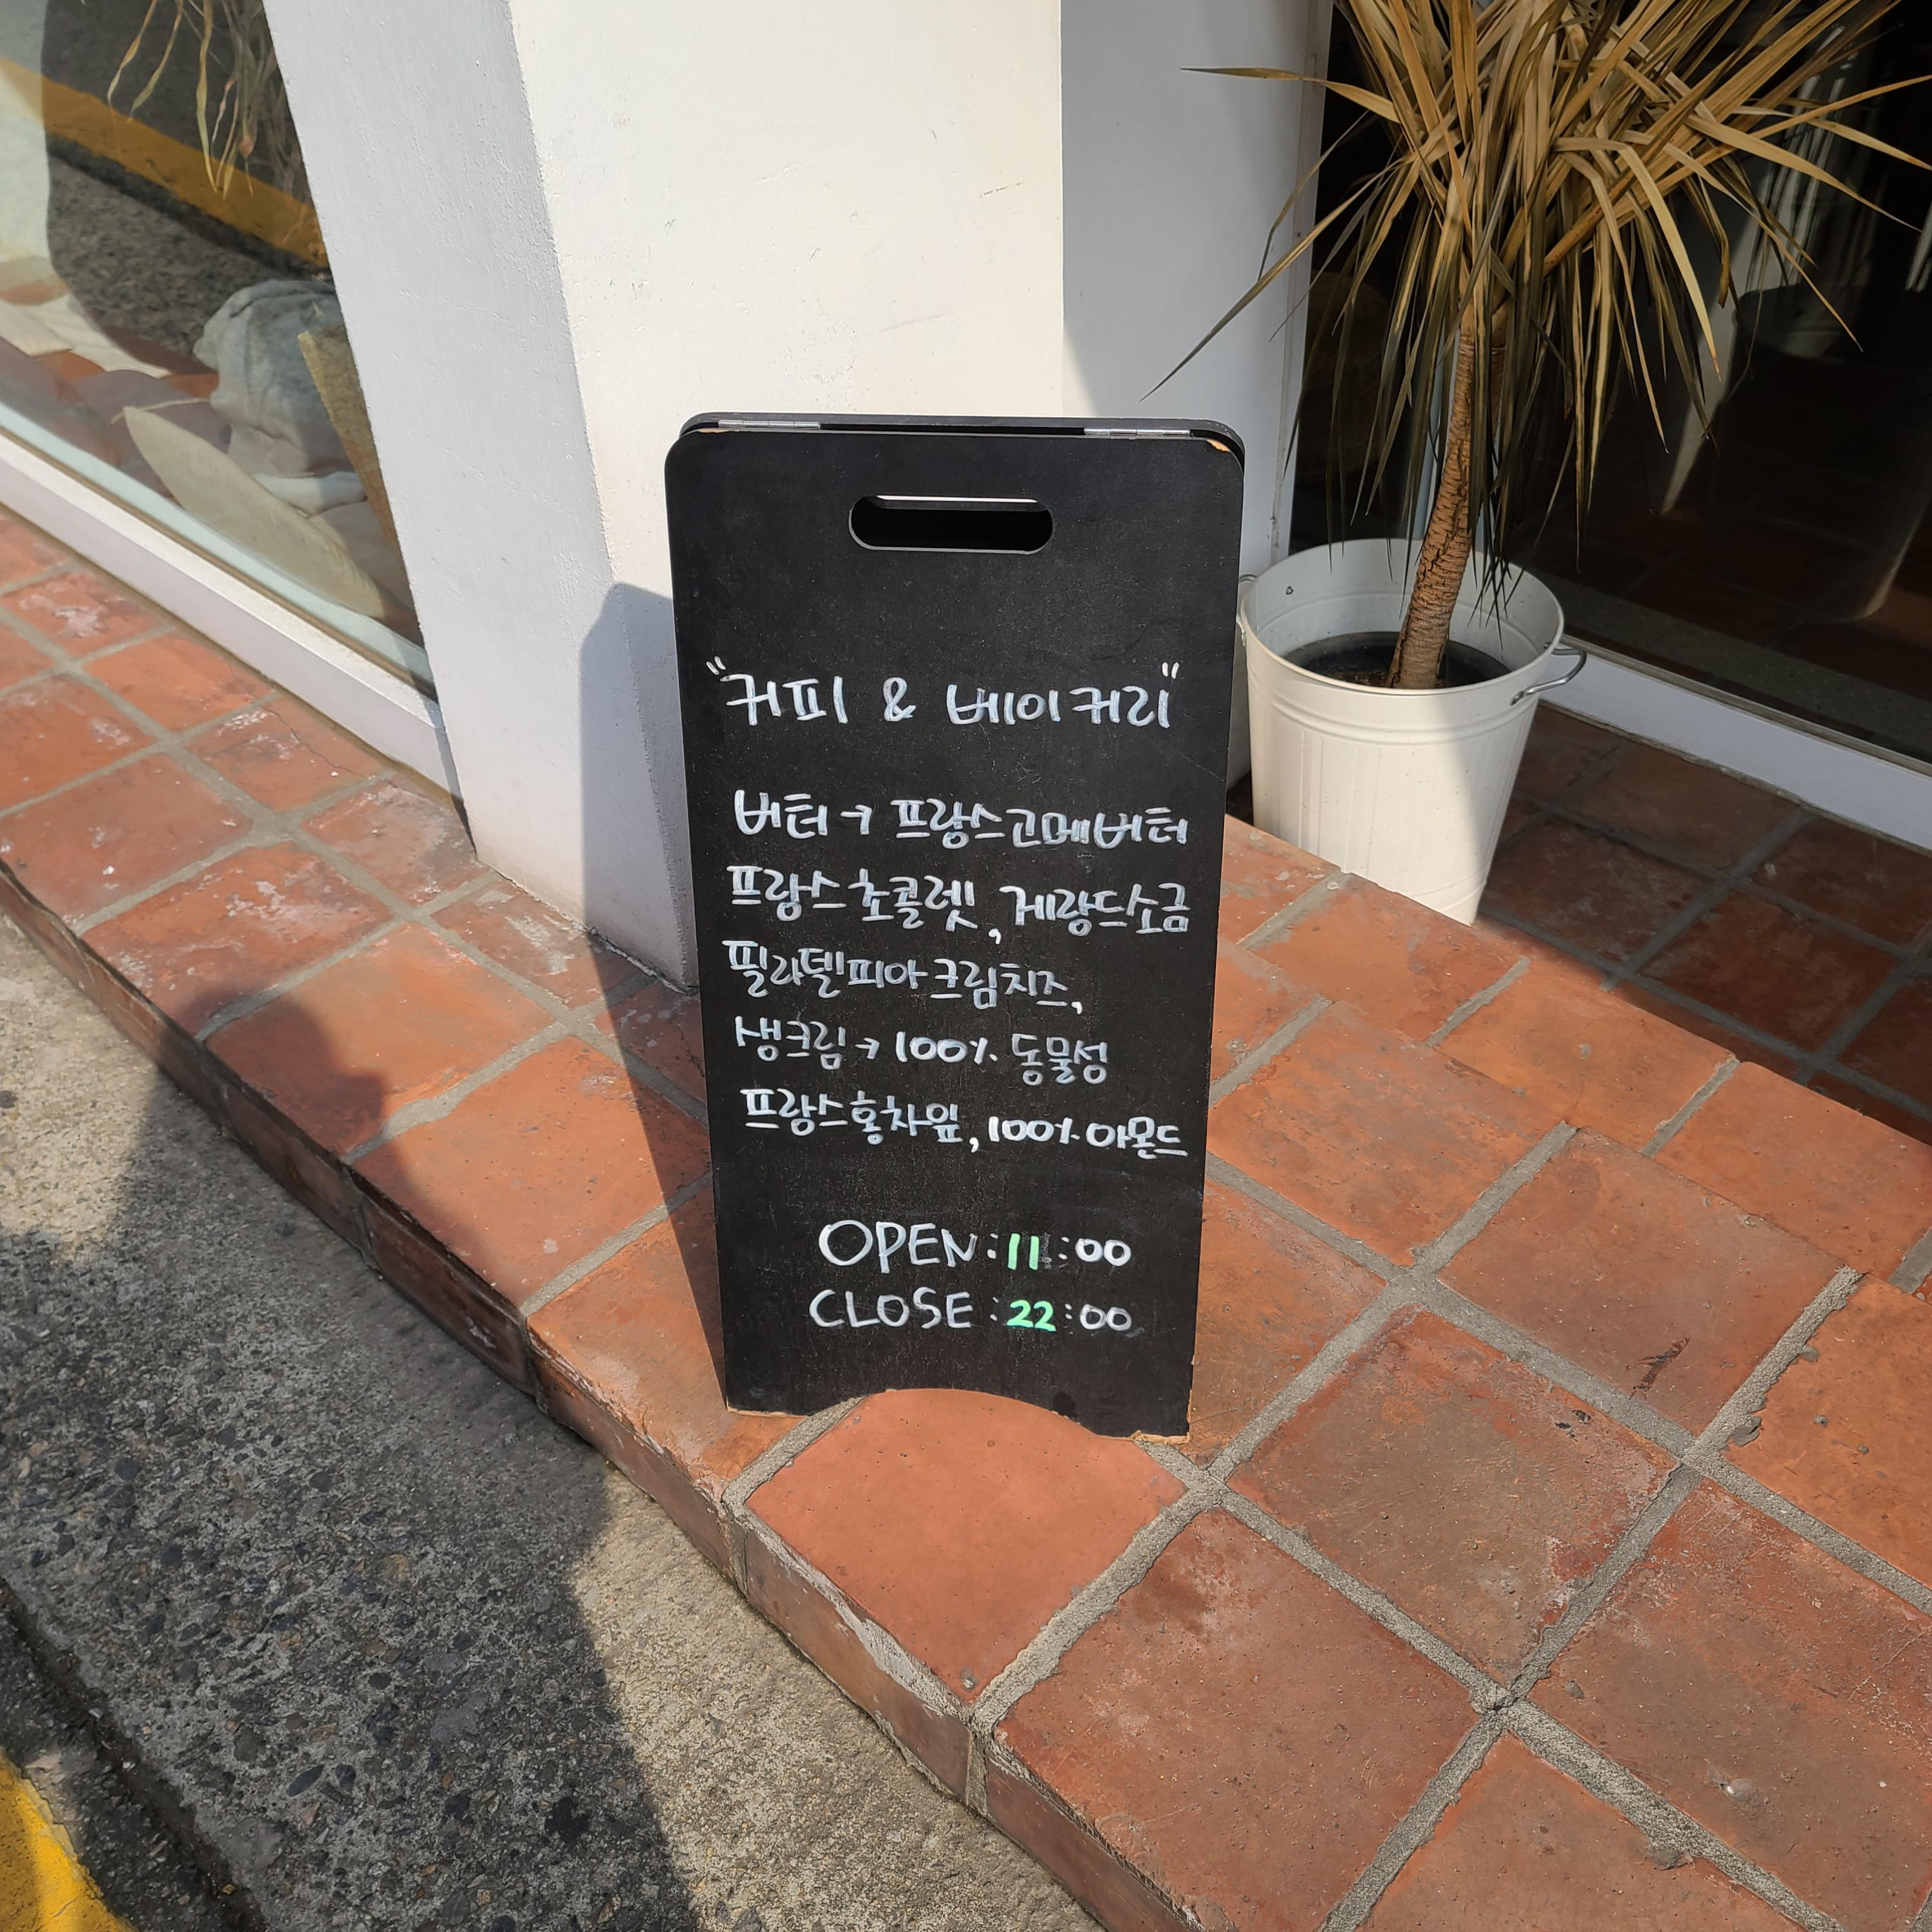 "커피 & 베이커리"
버터→프랑스고메버터
프랑스초콜렛,게랑드소금
필라델피아크림치즈,
생크림→100% 동물성
프랑스홍차잎,100%아몬드
OPEN:11:00
CLOSE:22:00